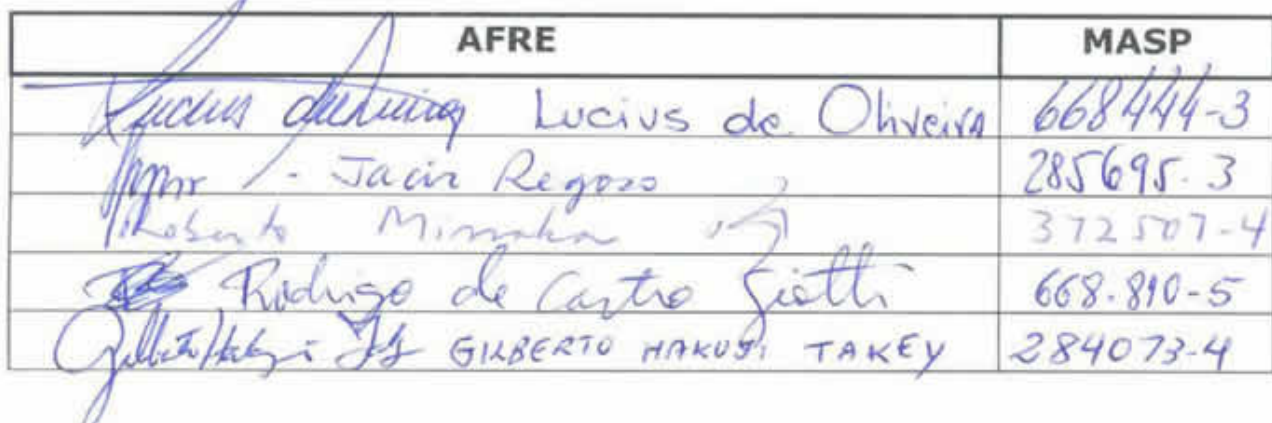 AFRE MASP
Lucius de Oliveira 668444-3
- Jacir Regozo 285695-3
Roberto 372507-4
Rodrigo de Castro 668.810-5
GILBERTO TAKEY 284073-4